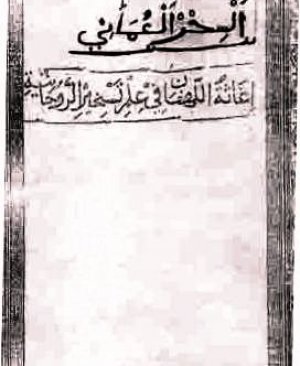 اَلسِّحْرُ الْعُمَانِي
إغَاثَةُ اللَّهْفَانِ فِي عِلْمِ تَسْخِيرِ الرُّوحَانِيَّةِ